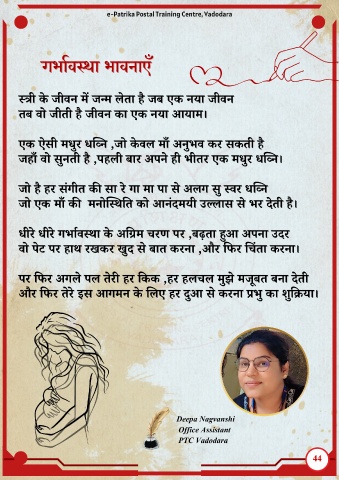 e-Patrika Postal Training Centre, Vadodara
गर्भावस्था भावनाएँ
स्त्री के जीवन में जन्म लेता है जब एक नया जीवन
तब वो जीती है जीवन का एक नया आयाम।
एक ऐसी मधुर धव्नि ,जो केवल माँ अनुभव कर सकती है
जहाँ वो सुनती है ,पहली बार अपने ही भीतर एक मधुर धव्नि।
जो है हर संगीत की सा रे गा मा पा से अलग सु स्वर धव्नि
जो एक माँ की मनोस्थिति को आनंदमयी उल्लास से भर देती है।
धीरे धीरे गर्भावस्था के अग्रिम चरण पर ,बढ़ता हुआ अपना उदर
वो पेट पर हाथ रखकर खुद से बात करना ,और फिर चिंता करना।
पर फिर अगले पल तेरी हर किक ,हर हलचल मुझे मजूबत बना देती
और फिर तेरे इस आगमन के लिए हर दुआ से करना प्रभु का शुक्रिया।
Deepa Nagvanshi
Office Assistant
PTC Vadodara
44